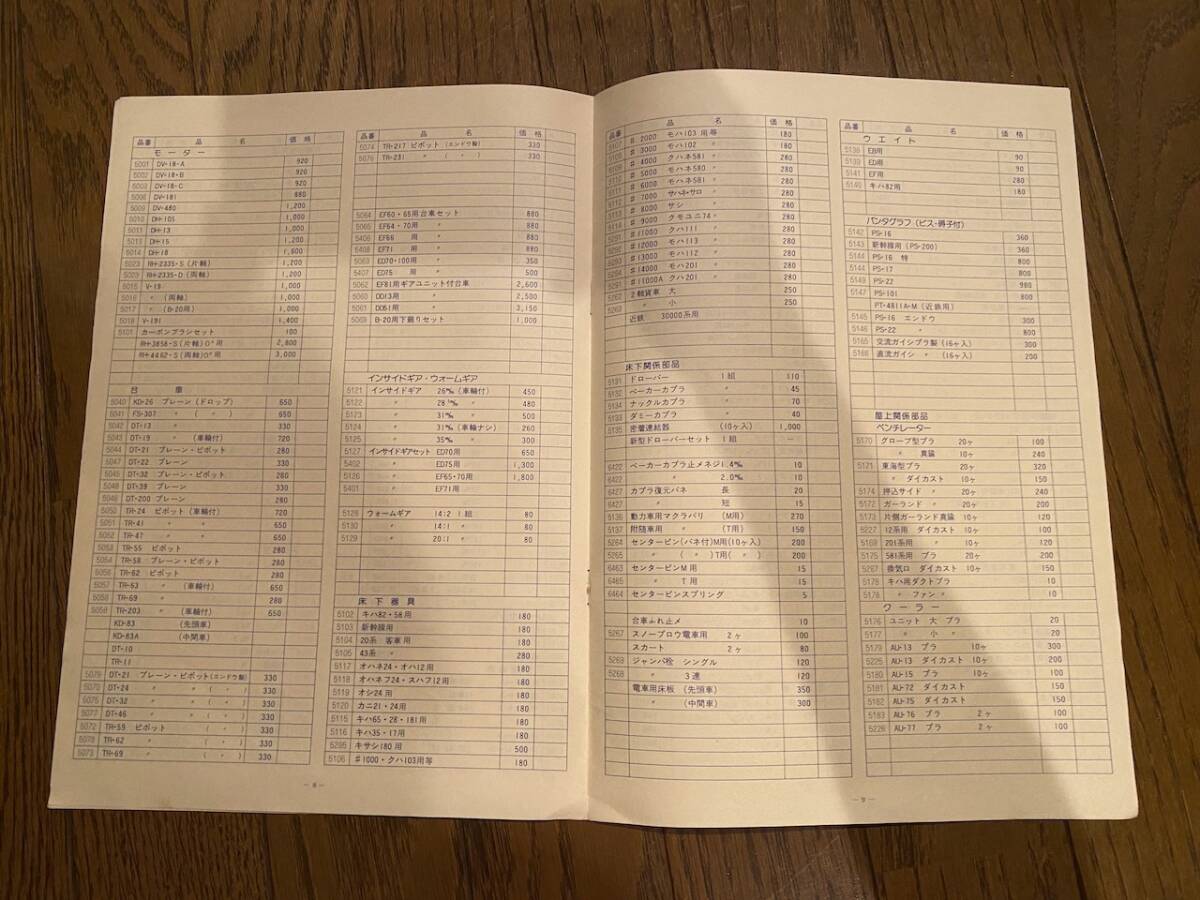 品番 品 名 価 格
モーター
5001 DV-18-A 920
5002 DV-18-B 920
5003 DV-18-C 920
DV-181 880
DV-480 1,200
5010 DH-105 1,000
5011 DH-13 1,000
DH-15 1,200
DH-18 1,600
5023 RH-2335-S (片軸) 1,200
RH-2335-D (両軸) 1,200
5015 V-19 1,000
5016 〃 (両軸) 1,000
5017 〃 (B-20用) 1,000
5018 V-191 1,400
5101 カーボンブラシセット 100
RH-3858-S (片軸) O゜用 2,800
RH-4462-S (両軸) O゜用 3,000
台 車
5040 KD-26 プレーン (ドロップ) 650
5041 FS-307 〃 ( 〃 ) 650
5042 DT-13 〃 330
5043 DT-19 〃 (車輪付) 720
5044 DT-21 プレーン・ピボット 280
5047 DT-22 プレーン 330
5045 DT-32 プレーン・ピボット 280
5048 DT-39 プレーン 330
DT-200 プレーン 280
5050 TR-24 ピボット (車輪付) 720
5051 TR-41 〃 〃 650
5052 TR-47 〃 〃 650
5053 TR-55 ピボット 280
5054 TR-58 プレーン・ピボット 280
5056 TR-62 ピボット 280
5057 TR-63 〃 (車輪付) 650
TR-69 〃 280
TR-203 〃 (車輪付) 650
KD-83 (先頭車)
KD-83A (中間車)
DT-10
TR-11
DT-21 プレーン・ピボット (エンドウ製) 330
DT-24 〃 〃 ( 〃 ) 330
DT-32 〃 〃 ( 〃 ) 330
5077 DT-46 〃 〃 ( 〃 ) 330
5072 TR-55 ピボット ( 〃 ) 330
TR-62 〃 ( 〃 ) 330
5073 TR-69 〃 ( 〃 ) 330
品番 品 名 価 格
5074 TR-217 ピボット (エンドウ製) 330
5076 TR-231 〃 ( 〃 ) 330
5064 EF60・65用台車セット 880
5065 EF64・70用 〃 880
EF66 用 〃 880
EF71 用 〃 880
ED70・100用 〃 350
5407 ED75 用 〃 500
5062 EF81用ギアユニット付台車 2,600
5060 DD13用 〃 2,500
5061 DD51用 〃 3,150
B-20用下廻りセット 1,000
インサイドギア・ウォームギア
5121 インサイドギア 26‰ (車輪付) 450
5122 〃 〃 480
5123 〃 31‰ 〃 500
5124 〃 31‰ (車輪ナシ) 260
5125 〃 35‰ 〃 300
5127 インサイドギアセット ED70用 650
5402 〃 ED75用 1,300
5126 〃 EF65・70用 1,800
5401 〃 EF71用
5128 ウォームギア 14:2 1組 80
5130 〃 14:1 〃 80
5129 〃 20:1 〃 80
床 下 器 具
5102 キハ82・58用 180
5103 新幹線用 180
5104 20系 客車用 180
5105 43系 〃 280
5117 オハネ24・オハ12用 180
5118 オハネフ24・スハフ12用 180
5119 オシ24用 180
5120 カニ21・24用 180
5115 キハ65・28・181用 180
5116 キハ35・17用 180
キサシ180用 500
5106 ♯1000・クハ103用等 180
− 8 −
品番 品 名 価 格
5107 ♯ 2000 モハ103 用等 180
♯ 3000 モハ102 〃 180
♯ 4000 クハネ581 〃 280
♯ 5000 モハネ580 〃 280
♯ 6000 モハネ581 〃 280
♯ 7000 サハネ・サロ 〃 280
♯ 8000 サシ 〃 280
♯ 9000 クモユニ74 〃 280
クハ111 〃 280
♯12000 モハ113 〃 280
♯13000 モハ112 〃 280
♯14000 モハ201 〃 280
5291 ♯11000A クハ201 〃 280
5262 2軸貨車 大 250
5263 〃 小 250
近鉄 30000系用
床下関係部品
5131 ドローバー 1 組 110
5132 ベーカーカプラ 〃 45
ナックルカプラ 〃 70
5133 ダミーカプラ 〃 40
5135 密着連結器 (10ヶ入) 1,000
新型ドローバーセット 1 組 −
6422 ベーカーカプラ止メネジ1.4‰ 10
6422 〃 2.0‰ 10
6427 カプラ復元バネ 長 20
6427 〃 短 15
5136 動力車用マクラバリ (M用) 270
5137 附随車用 〃 (T用) 150
5264 センターピン (バネ付) M用 (10ヶ入) 200
5265 〃 ( 〃 ) T用 ( 〃 ) 200
6463 センターピンM用 15
6465 〃 T用 15
6464 センターピンスプリング 5
台車ふれ止メ 10
5267 スノープロウ電車用 2ヶ 100
スカート 2ヶ 80
5269 ジャンパ栓 シングル 120
5268 〃 3連 120
電車用床板 (先頭車) 350
〃 (中間車) 300
品番 品 名 価 格
ウ エ イ ト
5138 EB用 90
5139 ED用 90
5141 EF用 280
5140 キハ82用 180
パンタグラフ (ビス・碍子付)
5142 PS-16 360
5143 新幹線用 (PS-200) 360
5144 PS-16 特 800
5144 PS-17 800
5149 PS-22 980
5147 PS-101 800
PT-4811A-M (近鉄用)
5145 PS-16 エンドウ 300
5146 PS-22 〃 800
5165 交流ガイシプラ製 (16ヶ入) 300
5166 直流ガイシ 〃 (16ヶ入) 200
屋上関係部品
ベンチレーター
5170 グローブ型プラ 20ヶ 100
〃 真鍮 10ヶ 240
5171 東海型プラ 20ヶ 320
〃 ダイカスト 10ヶ 150
5174 押込サイド 〃 20ヶ 240
5172 ガーランド 〃 20ヶ 200
5173 片側ガーランド真鍮 10ヶ 120
5227 12系用 ダイカスト 10ヶ 100
5169 201系用 〃 10ヶ 120
5175 581系用 プラ 20ヶ 200
5267 換気口 ダイカスト 10ヶ 150
5178 キハ用ダクトプラ 10
5178 〃 ファン 〃 10
ク ー ラ ー
5176 ユニット 大 プラ 20
5177 〃 小 〃 20
5179 AU-13 プラ 10ヶ 300
5225 AU-13 ダイカスト 10ヶ 200
5180 AU-15 プラ 10ヶ 100
5181 AU-72 ダイカスト 150
5182 AU-75 ダイカスト 150
5183 AU-76 プラ 2ヶ 100
5226 AU-77 プラ 2ヶ 100
− 9 −